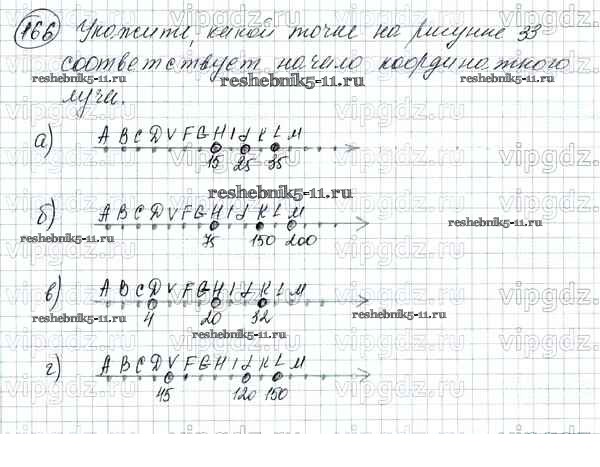 166 Укажите, какой точке на рисунке 33
соответствует начало координатного
луча.
reshebnik5-11.ru reshebnik5-11.ru reshebnik5-11.ru
а) A B C D V F G H I J K L M
15 25 35
reshebnik5-11.ru
б) A B C D V F G H I J K L M
75 150 200
reshebnik5-11.ru reshebnik5-11.ru
в) A B C D V F G H I J K L M
4 20 32
reshebnik5-11.ru reshebnik5-11.ru
reshebnik5-11.ru
г) A B C D V F G H I J K L M
45 120 150
vipgdz.ru